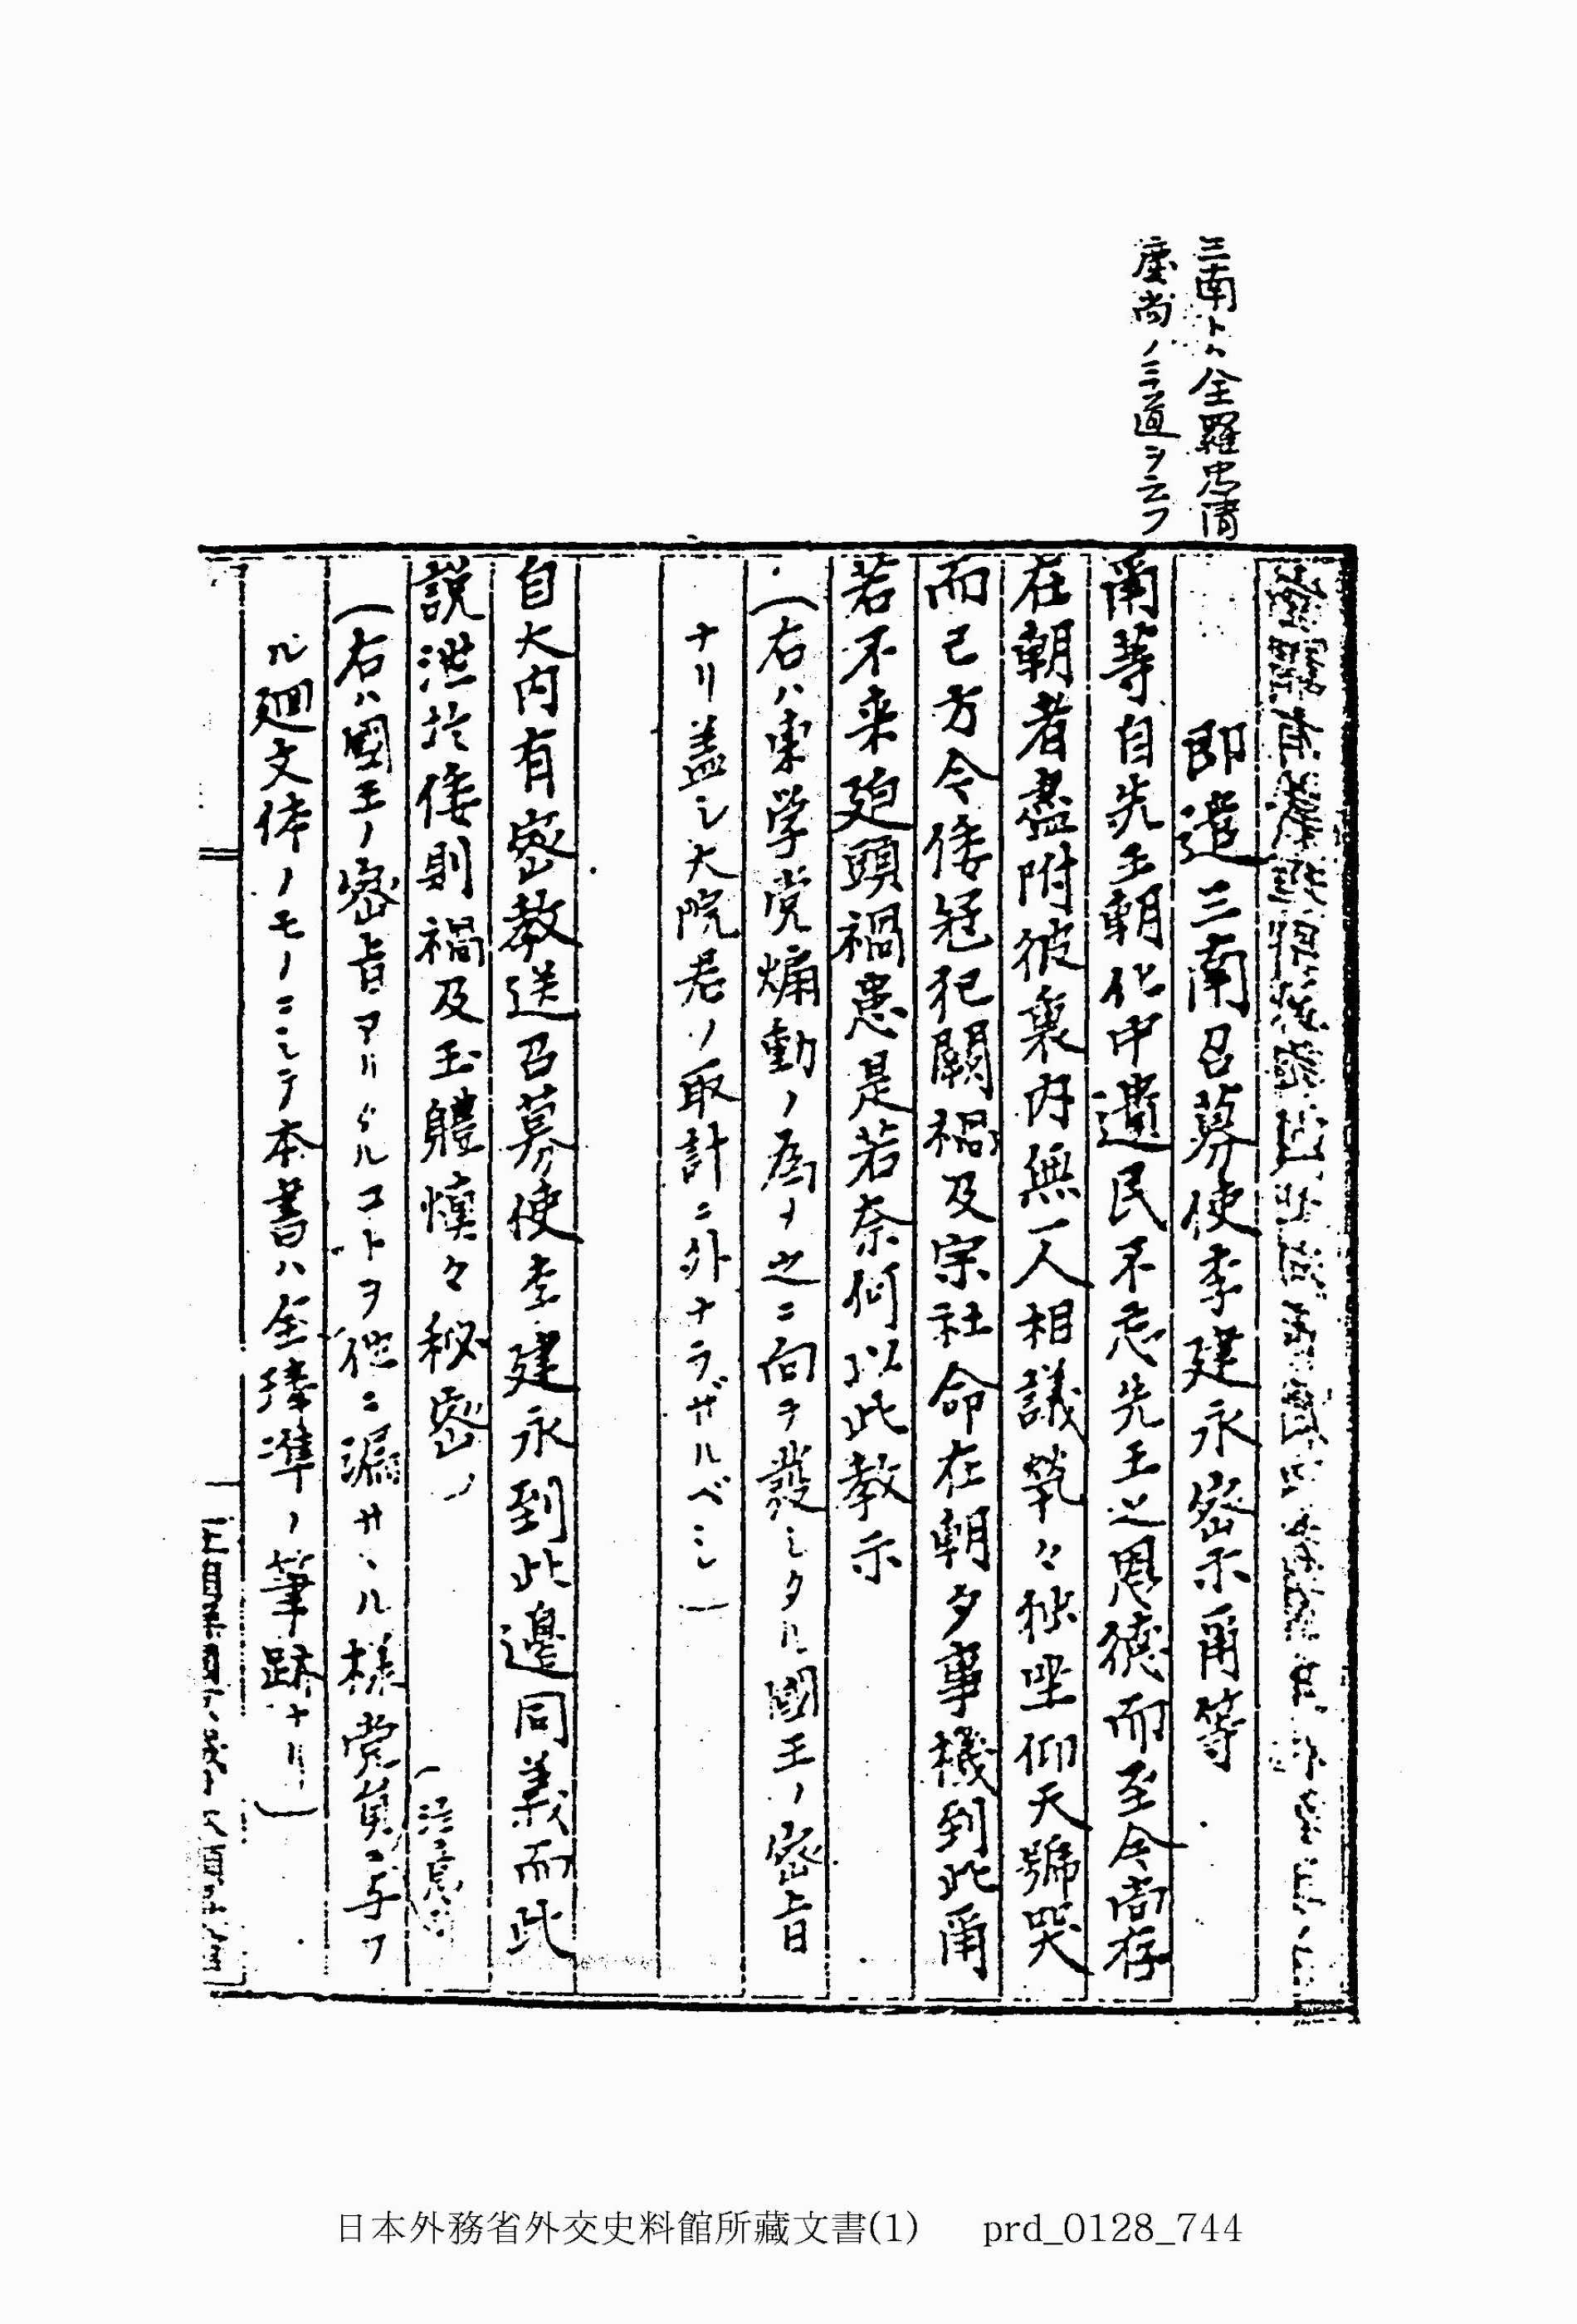 三南トハ全羅忠清
慶尚ノ三道ヲ云フ
即遣三南召募使李建永密示爾等
爾等自先王朝化中遺民不忘先王之恩德而至今尚存
在朝者盡附彼裏内無一人相議煢々独坐仰天號哭
而已方今倭冦犯闕禍及宗社命在朝夕事機到此爾
若不来廻頭禍患是若奈何以此教示
(右ハ東学党煽動ノ為メ之ニ向テ發シタル國王ノ密旨
ナリ盖シ大院君ノ取計ニ外ナラザルベシ)
自大内有密教送召募使李建永到此邊同義而此
説泄於倭則禍及玉體慎々秘密
(右ハ國王ノ密旨アリタルコトヲ他ニ漏サヽル様党員ニ与フ
ル廻文体ノモノニシテ本書ハ全琫準ノ筆跡ナリ)
日本外務省外交史料館所藏文書(1) prd_0128_744